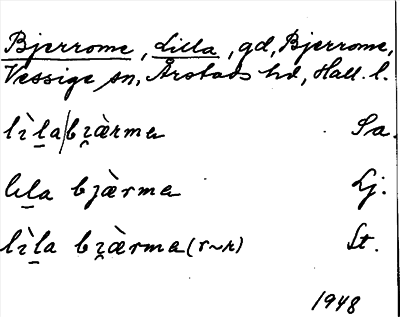 Bjerrome, Lilla, gd, Bjerrome,
Vessige sn, Årstads hd, Hall. l.
lì̱la|bi̯àrmɐ Sa.
lɩ̱la bjàrmɐ Lj.
lì̱la bi̯àrmɐ (r~ʀ) St.
1948